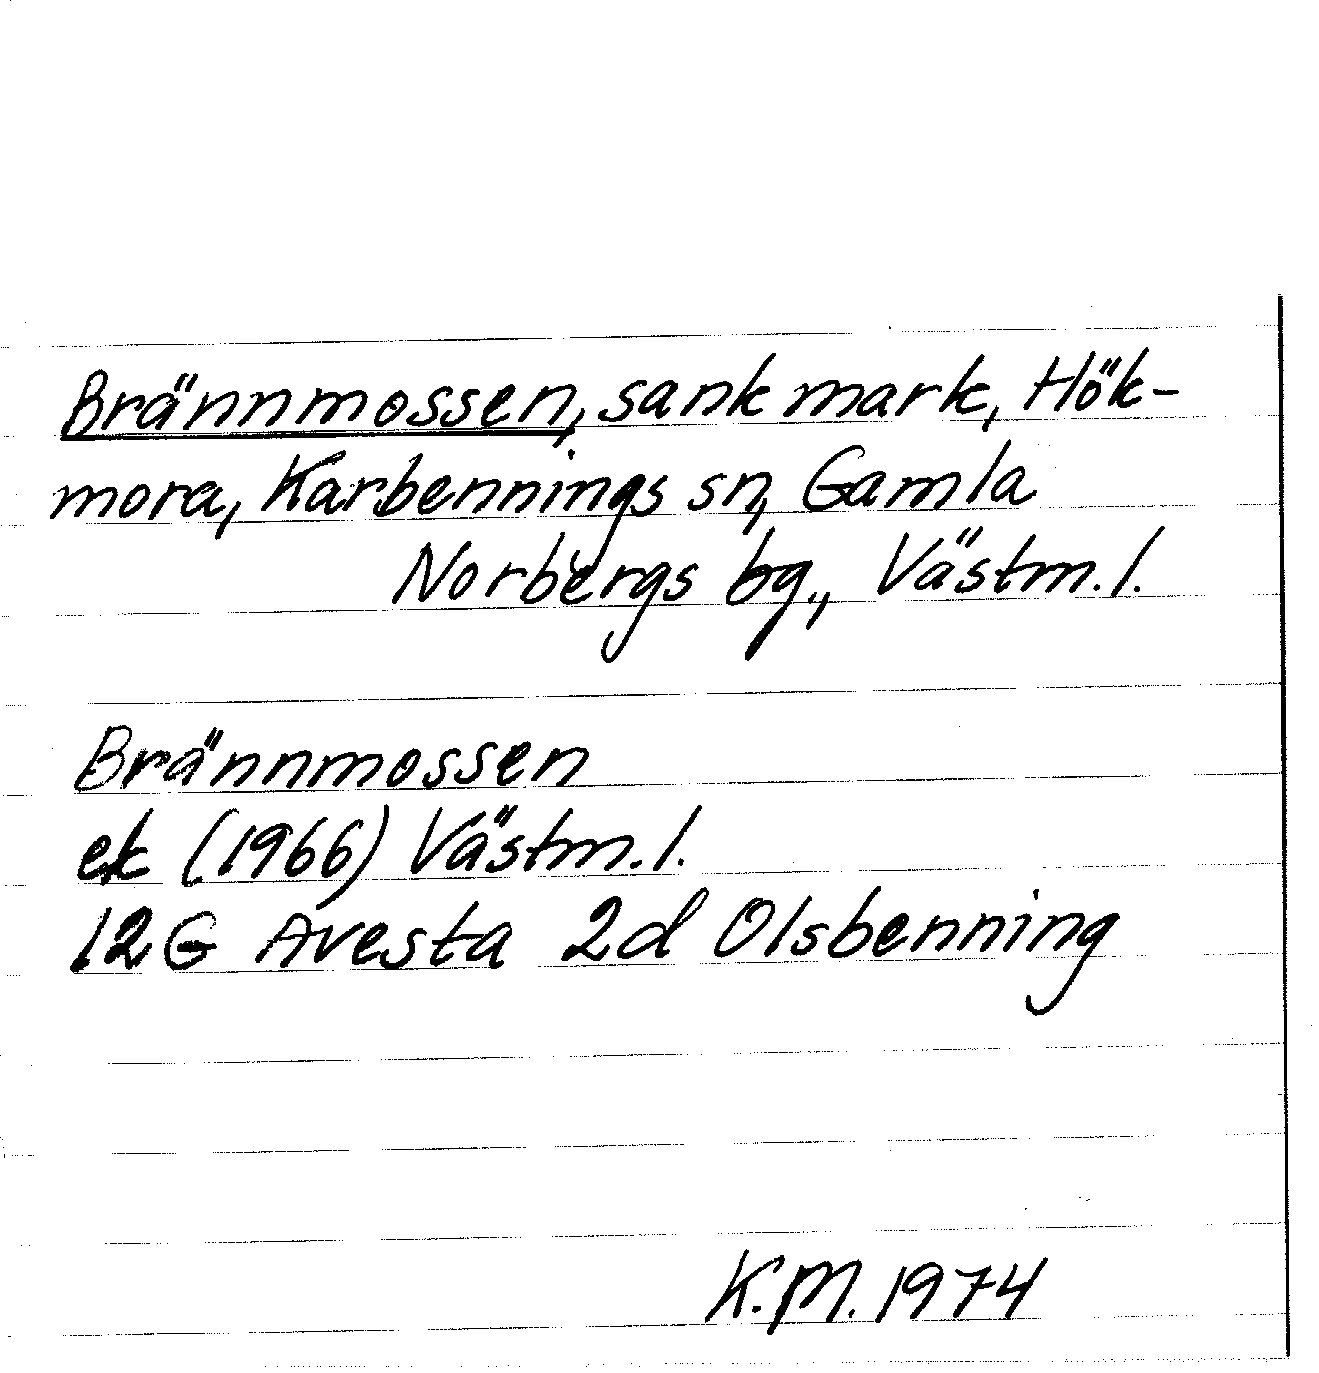 Brännmossen, sank mark, Hök-
mora, Karbennings sn, Gamla
Norbergs bg., Västm. l.
Brännmossen
ek (1966) Västm. l.
12G Avesta 2d Olsbenning
K.M. 1974